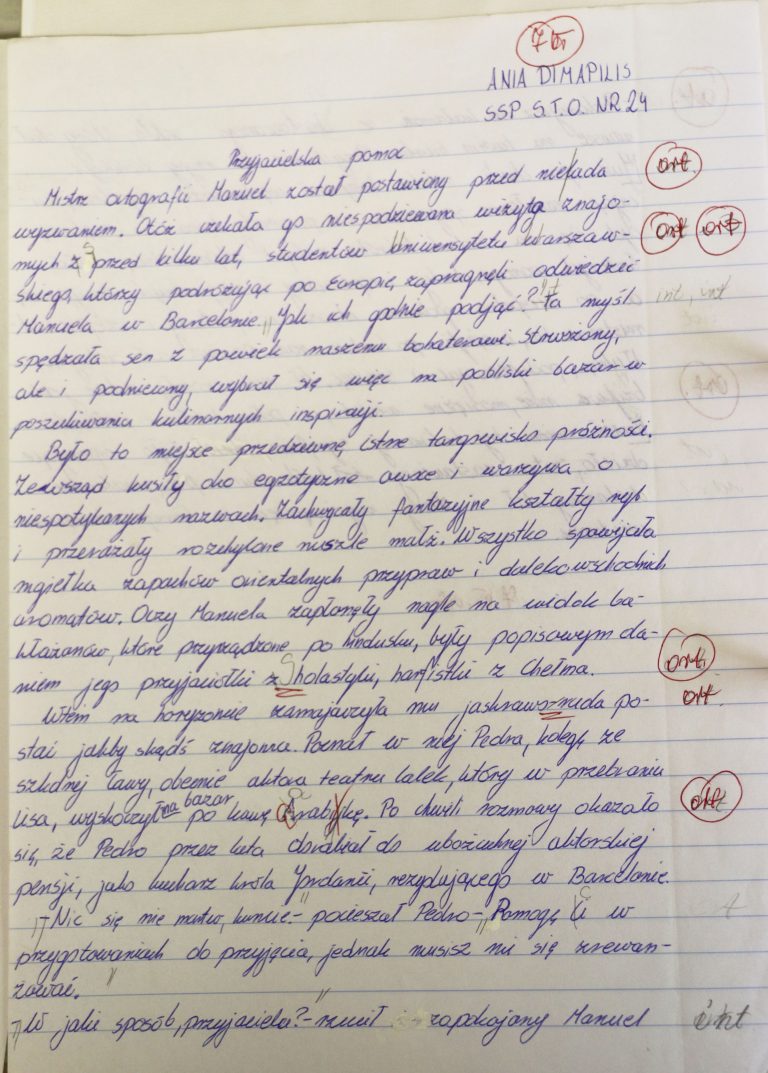 7 bł
ANIA DIMAPILIS
SSP S.T.O. NR 24
Przyjacielska pomoc
Mistrz ortografii Manuel został postawiony przed nielada ort.
wyzwaniem. Otóż czekała go niespodziewana wizyta znajo-
mych z przed kilku lat, studentów Uniwersytetu Warszaw- ort ort
skiego, którzy podróżując po Europie, zapragnęli odwiedzić
Manuela w Barcelonie. "Jak ich godnie podjąć?" Ta myśl int, int
spędzała sen z powiek naszemu bohaterowi. Struożony,
ale i podniecony, wybrał się więc na pobliski bazar w
poszukiwaniu kulinarnych inspiracji.
Było to miejsce przedziwne, istne targowisko próżności.
Zewsząd kusiły oko egzotyczne owoce i warzywa o
niespotykanych nazwach. Zachwycały fantazyjne kształty ryb
i przerażały rozchylone muszle małż. Wszystko spowijała
mgiełka zapachów orientalnych przypraw i dalekowschodnich
aromatów. Oczy Manuela zapłonęły nagle na widok ba-
kłażanów, które przyrządzone po hindusku, były popisowym da-
niem jego przyjaciółki z Sholastyki, harfistki z Chełma. ort.
Wtem na horyzoncie zamajaczyła mu jaskraworuda po- ort.
stać jakby skądś znajoma. Poznał w niej Pedra, kolegę ze
szkolnej ławy, obecnie aktora teatru lalek, który w przebraniu
lisa, wyskoczył na bazar po kawę Arabikę. Po chwili rozmowy okazało ort
się, że Pedro przez lata dorabiał do ubożuchnej aktorskiej
pensji, jako kucharz króla Jordanii, rezydującego w Barcelonie.
"- Nic się nie martw, kumie-" pocieszał Pedro-" Pomogę Ci w
przygotowaniach do przyjęcia, jednak musisz mi się zrewan-
żować."
"- W jaki sposób, przyjacielu?-" rzucił zapokojany Manuel int